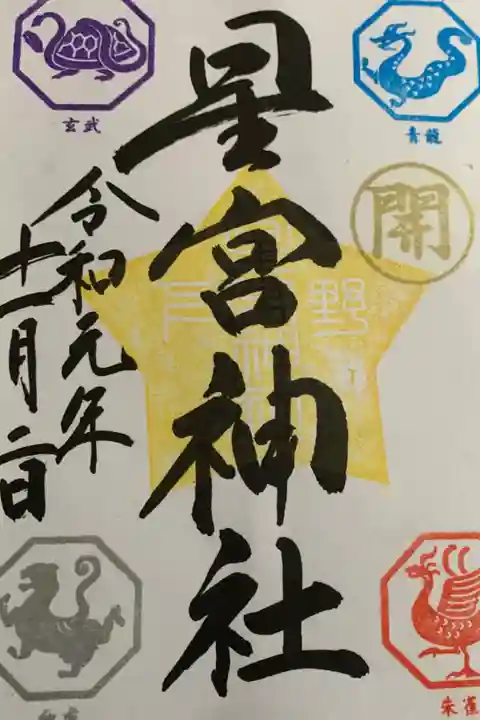 青龍
開
朱雀
星宮神社
玄武
令和元年
十一月二日